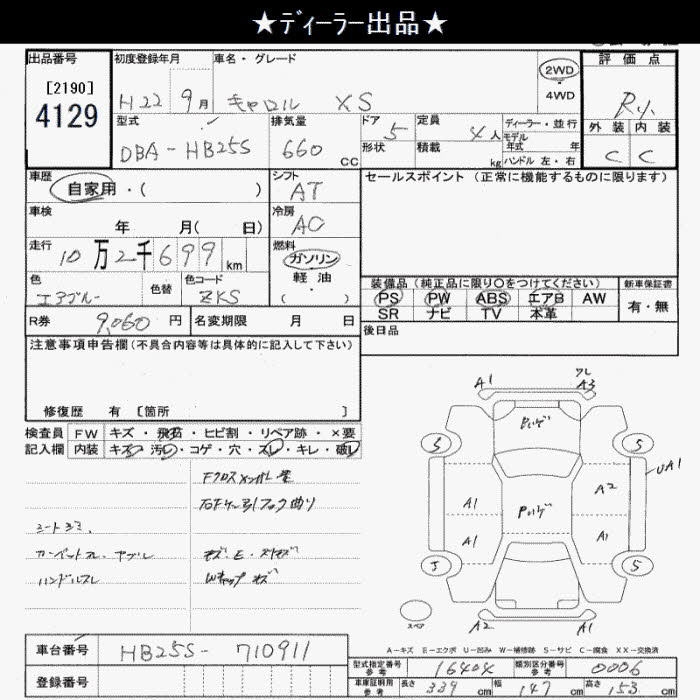 ★ディーラー出品★
出品番号
[2190]
4129
初度登録年月
H22 9月
車名・グレード
キャロル XS
2WD
4WD
評価点
外装 内装
C C
型式
DBA-HB25S
排気量
660 cc
ドア
5
形状
定員
4人
積載
kg
ディーラー・並行
モデル
年式 年
ハンドル 左・右
車歴
自家用・( )
シフト
AT
セールスポイント (正常に機能するものに限ります)
車検
年 月( 日)
冷房
AC
走行
10万2千699 km
燃料
ガソリン
軽・油
( )
色
エアブルー
色替
色コード
ZKS
装備品(純正品に限り○をつけてください)
PS PW ABS エアB AW
SR ナビ TV 本革
新車保証書
有・無
R券 9,060 円
名変期限 月 日
後日品
注意事項申告欄(不具合内容等は具体的に記入して下さい)
修復歴 有 [箇所 ]
検査員
記入欄
FW キズ・飛石・ヒビ割・リペア跡・×要
内装 キズ・汚れ・コゲ・穴・スレ・キレ・破れ
カーペットスレ
ハンドルスレ
Wキャップキズ
A1
A3
S
S
UA1
A2
A1
A1
A1
S
S
スペア
A2
A1
A-キズ E-エクボ U-凹み W-補修跡 S-サビ C-腐食 XX-交換済
車台番号 HB25S-710911
登録番号
型式指定番号
参考
16404
類別区分番号
参考
0006
車庫証明用
参考
長さ 339 cm
幅 147 cm
高さ 153 cm